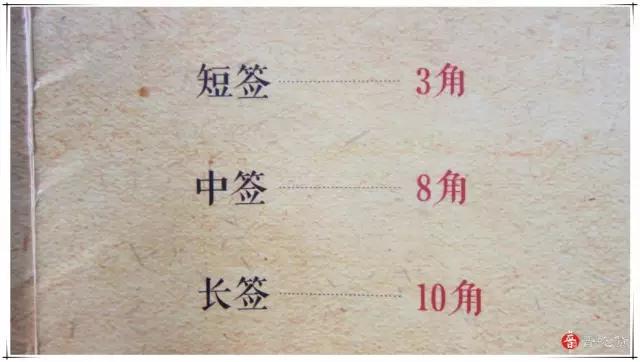 短签 3角
中签 8角
长签 10角